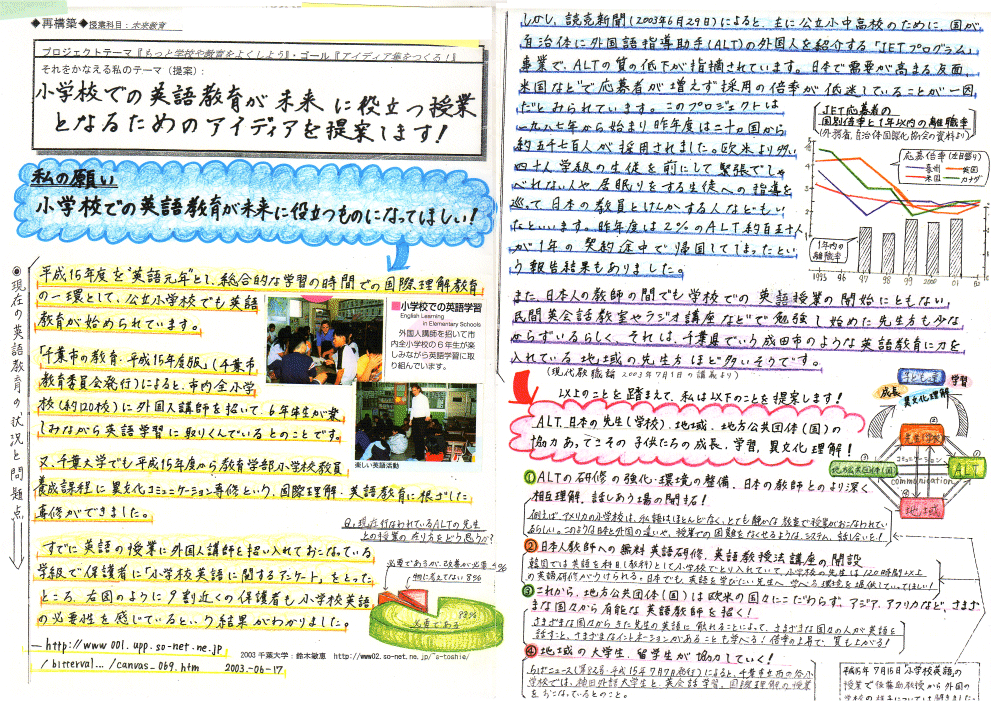 ◆再構築◆授業科目:未来教育
プロジェクトテーマ『もっと学校や教育をよくしよう』・ゴール『アイディア集をつくる!』
それをかなえる私のテーマ(提案):
小学校での英語教育が未来に役立つ授業
となるためのアイディアを提案します!
私の願い
小学校での英語教育が未来に役立つものになってほしい!
◎現在の英語教育の状況と問題点
平成15年度を"英語元年"とし、総合的な学習の時間での国際理解教育
の一環として、公立小学校でも英語
教育が始められています。
「千葉市の教育・平成15年度版」(千葉市
教育委員会発行)によると、市内全小学
校(約120校)に外国人講師を招いて、6年生が楽
しみながら英語学習に取りくんでいるとのことです。
又、千葉大学でも平成15年度から教育学部小学校教員
養成課程に異文化コミュニケーション専修という、国際理解・英語教育に根ざした
専修ができました。
■小学校での英語学習
English Learning
in Elementary Schools
外国人講師を招いて市
内全小学校の6年生が楽
しみながら英語学習に取
り組んでいます。
楽しい英語活動
Q.現在行なわれているALTの先生
との授業の在り方をどう思うか?
すでに英語の授業に外国人講師を招い入れておこなっている
学級で保護者に「小学校英語に関するアンケート」をとった
ところ、右図のように9割近くの保護者も小学校英語
の必要性を感じているという結果がわかりました。
必要であるが、改善が必要
特に考えてない 8%
92%
必要である
http://www001.upp.so-net.ne.jp
/bitterval.../canvas-069.htm 2003-06-17
2003千葉大学:鈴木敏恵 http://www02.so-net.ne.jp/~s-toshie/
しかし、読売新聞(2003年6月29日)によると、主に公立小中高校のために、国が
自治体に外国語指導助手(ALT)の外国人を紹介する「JETプログラム」
事業で、ALTの質の低下が指摘されています。日本で需要が高まる反面、
米国などで応募者が増えず採用の倍率が低迷していることが一因
だとみられています。このプロジェクトは
一九八七年から始まり昨年度は二十カ国から
約五千七百人が採用されました。欧米より多い
四十人学級の生徒を前にして緊張でしゃ
べれない人や居眠りをする生徒への指導を
巡って日本の教員とけんかする人などもい
たといいます。昨年度は2%のALT約百五十人
が1年の契約途中で帰国してしまったとい
う報告結果もありました。
JET応募者の
国別倍率と1年以内の離職率
(外務省、自治体国際化協会の資料より)
応募倍率(左目盛り)
豪州
英国
米国
カナダ
1年内の
離職率
1995 96 97 98 99 2000 01 02
また、日本人の教師の間でも学校での英語授業の開始にともない、
民間英会話教室やラジオ講座などで勉強し始めた先生方も少な
からずいるらしく、それは、千葉県でいう成田市のような英語教育に力を
入れている地域の先生方ほど多いそうです。
(現代教職論 2003年7月1日の講義より)
以上のことを踏まえて、私は以下のことを提案します!
ALT、日本の先生(学校)、地域、地方公共団体(国)の
協力あってこその子供たちの成長、学習、異文化理解!
子ども達
成長
学習
異文化理解
先生(学校)
コミュニケーション
地方公共団体(国)
ALT
communication
地域
①ALTの研修の強化・環境の整備、日本の教師とのより深く
相互理解、話しあう場の開拓!
例えば、アメリカの小学校は、私語はほとんどなく、とても静かな教室で授業がおこなわれてい
るらしい。このような日本と外国の違いや、授業での困難をなくせるような、システム、話し合いを!
②日本人教師への無料英語研修、英語教授法講座の開設
韓国では英語を科目(教科)として小学校でとり入れていて、小学校の先生は120時間以上
の英語研修がうけられる。日本でも、英語を学びたい先生へ、学べる環境を提供していってほしい!
③これから、地方公共団体(国)は欧米の国々にこだわらず、アジア、アフリカなど、さまざ
まな国々から有能な英語教師を招く!
さまざまな国々からきた先生の英語に触れることによって、さまざまな国々の人が英語を
話すこと、さまざまなイントネーションがあることも学べる!倍率の上昇で、質も上がる!
④地域の大学生、留学生が協力していく!
平成15年7月7日発行)によると、千葉市立西の谷小
学校では、神田外語大学生と、英会話学習、国際理解の授業
をおこなっているとのこと。
平成15年7月15日「小学校英語」の
授業で佐藤助教授から外国の